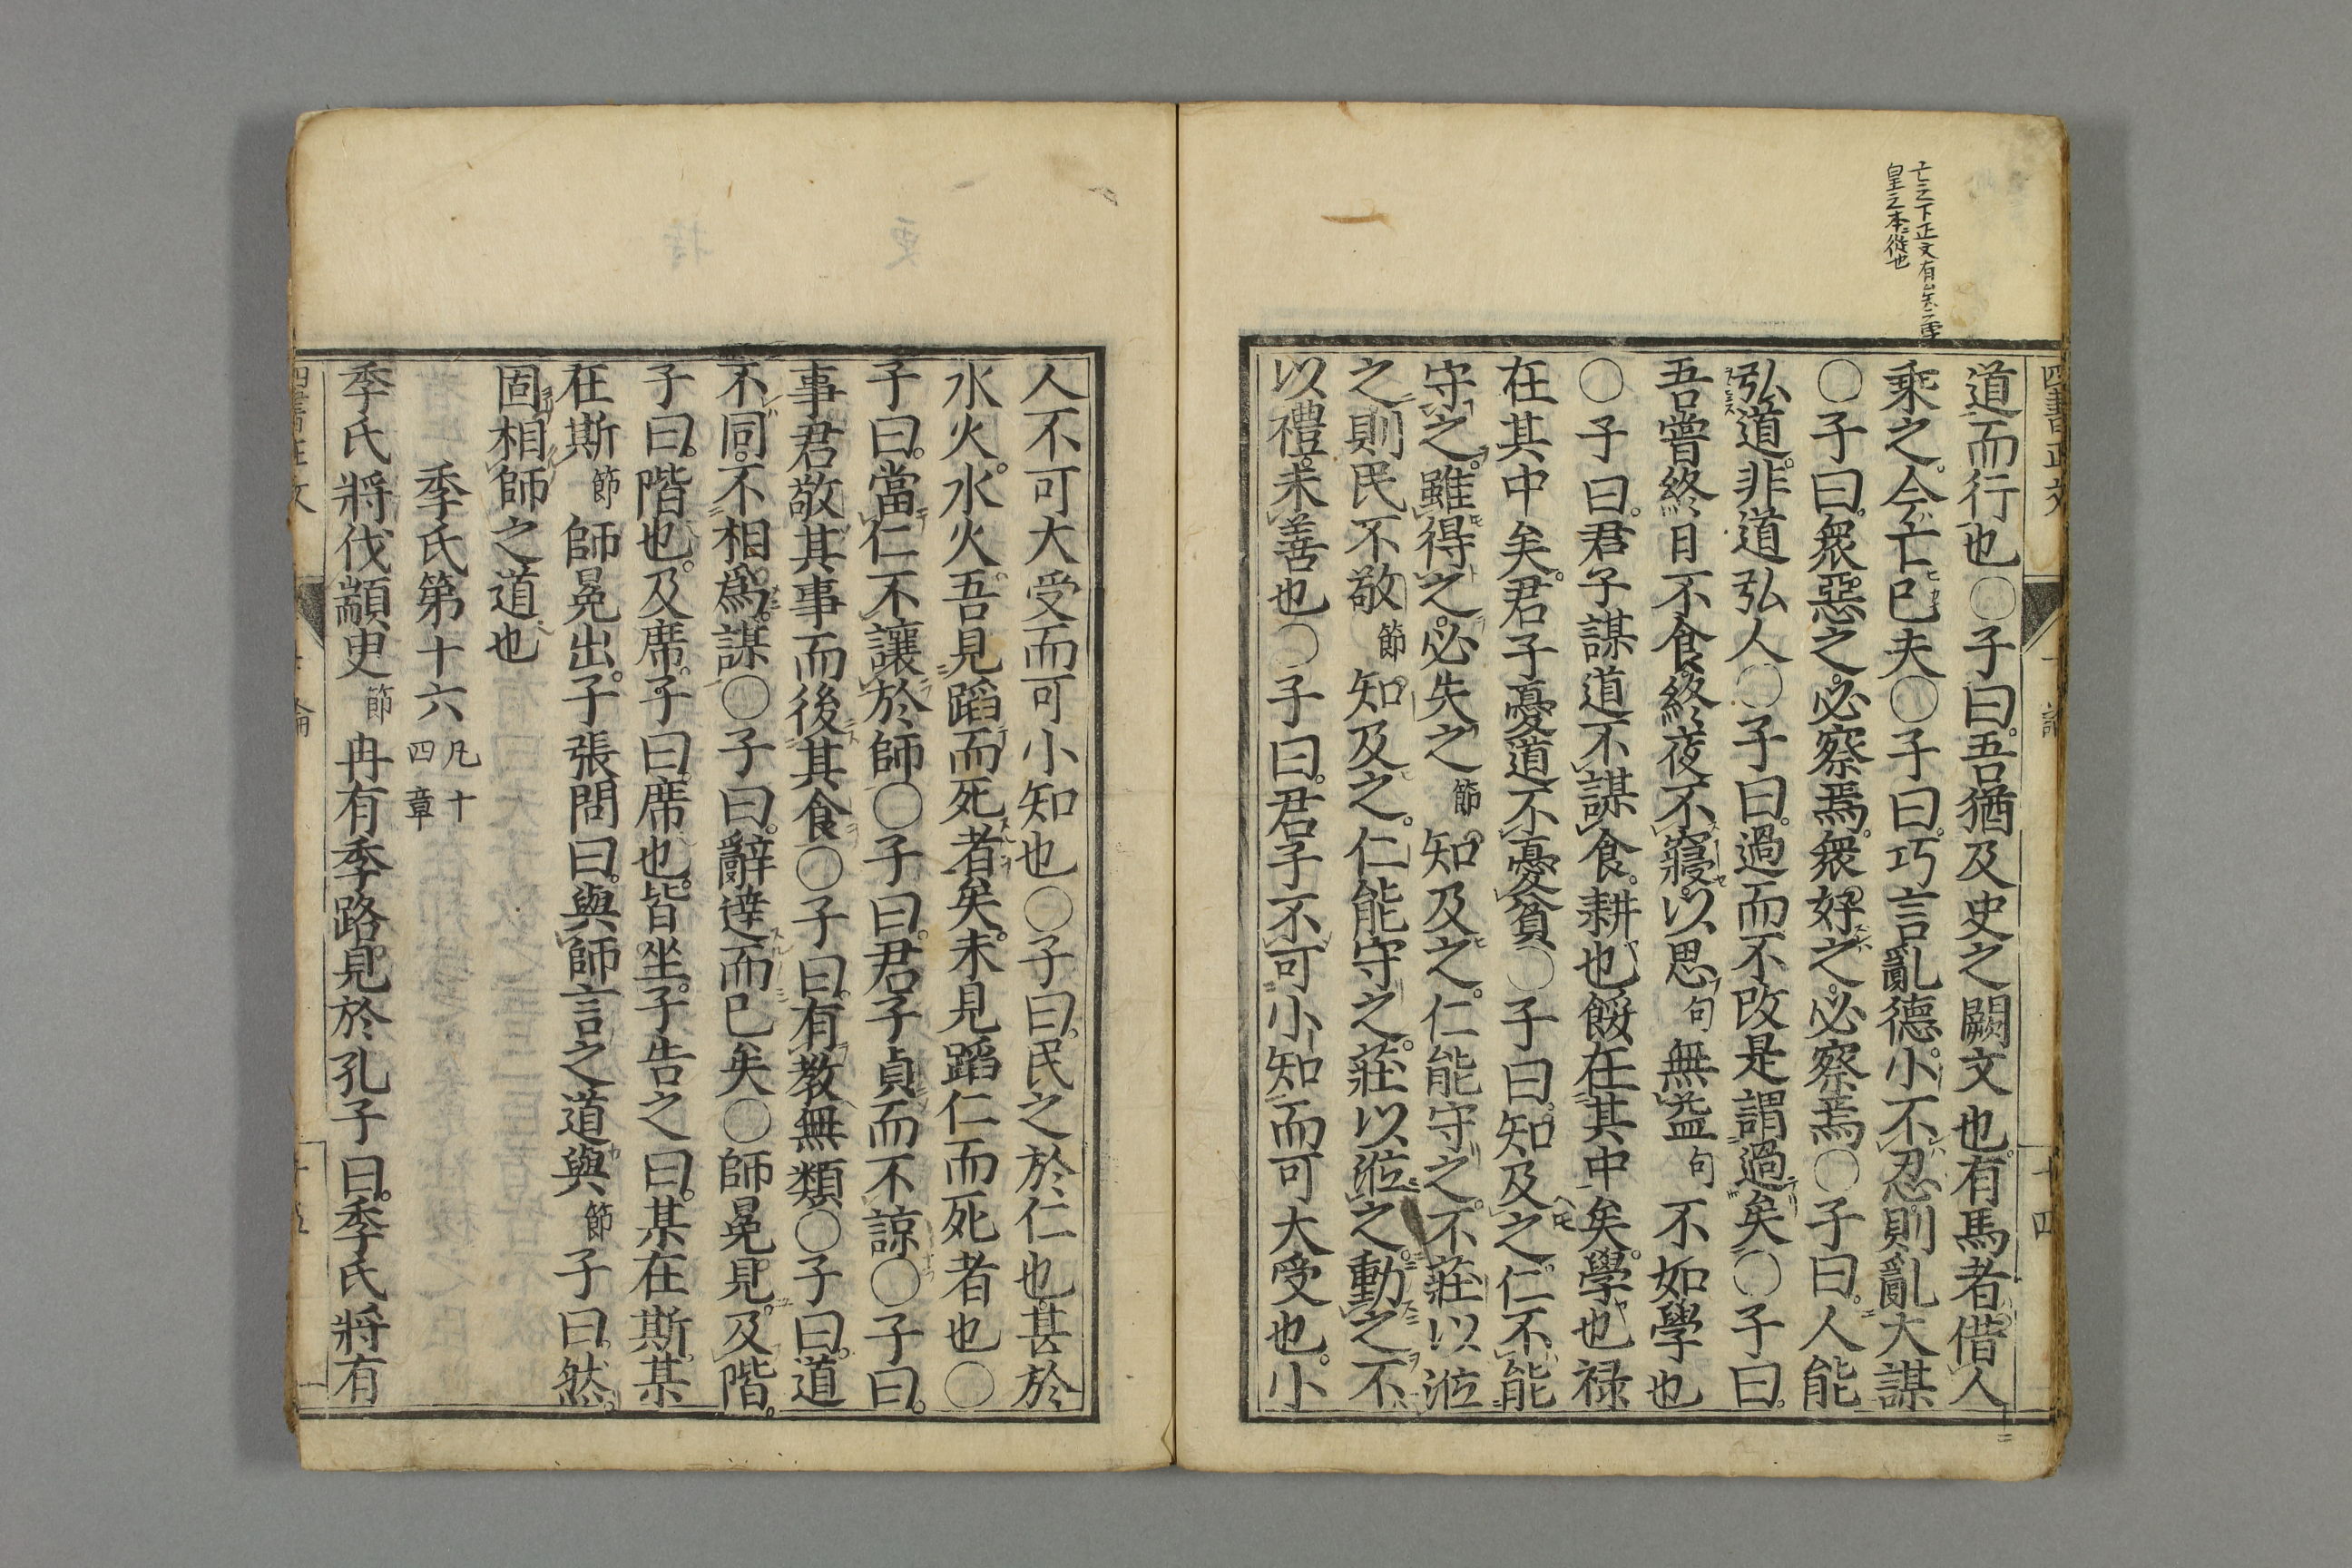 亡之下正文有矣字
皇之本從也
四書正文
十四
道而行也○子曰吾猶及史之闕文也有馬者借人
乘之今亡已夫○子曰巧言亂德小不忍則亂大謀
○子曰衆惡之必察焉衆好之必察焉○子曰人能
弘道非道弘人○子曰過而不改是謂過矣○子曰
吾嘗終日不食終夜不寢以思句無益句不如學也
○子曰君子謀道不謀食耕也餒在其中矣學也祿
在其中矣君子憂道不憂貧○子曰知及之仁不能
守之雖得之必失之節知及之仁能守之不莊以涖
之則民不敬節知及之仁能守之莊以涖之動之不
以禮未善也○子曰君子不可小知而可大受也小
人不可大受而可小知也○子曰民之於仁也甚於
水火水火吾見蹈而死者矣未見蹈仁而死者也○
子曰當仁不讓於師○子曰君子貞而不諒○子曰
事君敬其事而後其食○子曰有教無類○子曰道
不同不相爲謀○子曰辭達而已矣○師冕見及階
子曰階也及席子曰席也皆坐子告之曰某在斯某
在斯節師冕出子張問曰與師言之道與節子曰然
固相師之道也
季氏第十六 凡十四章
季氏將伐顓臾節冉有季路見於孔子曰季氏將有